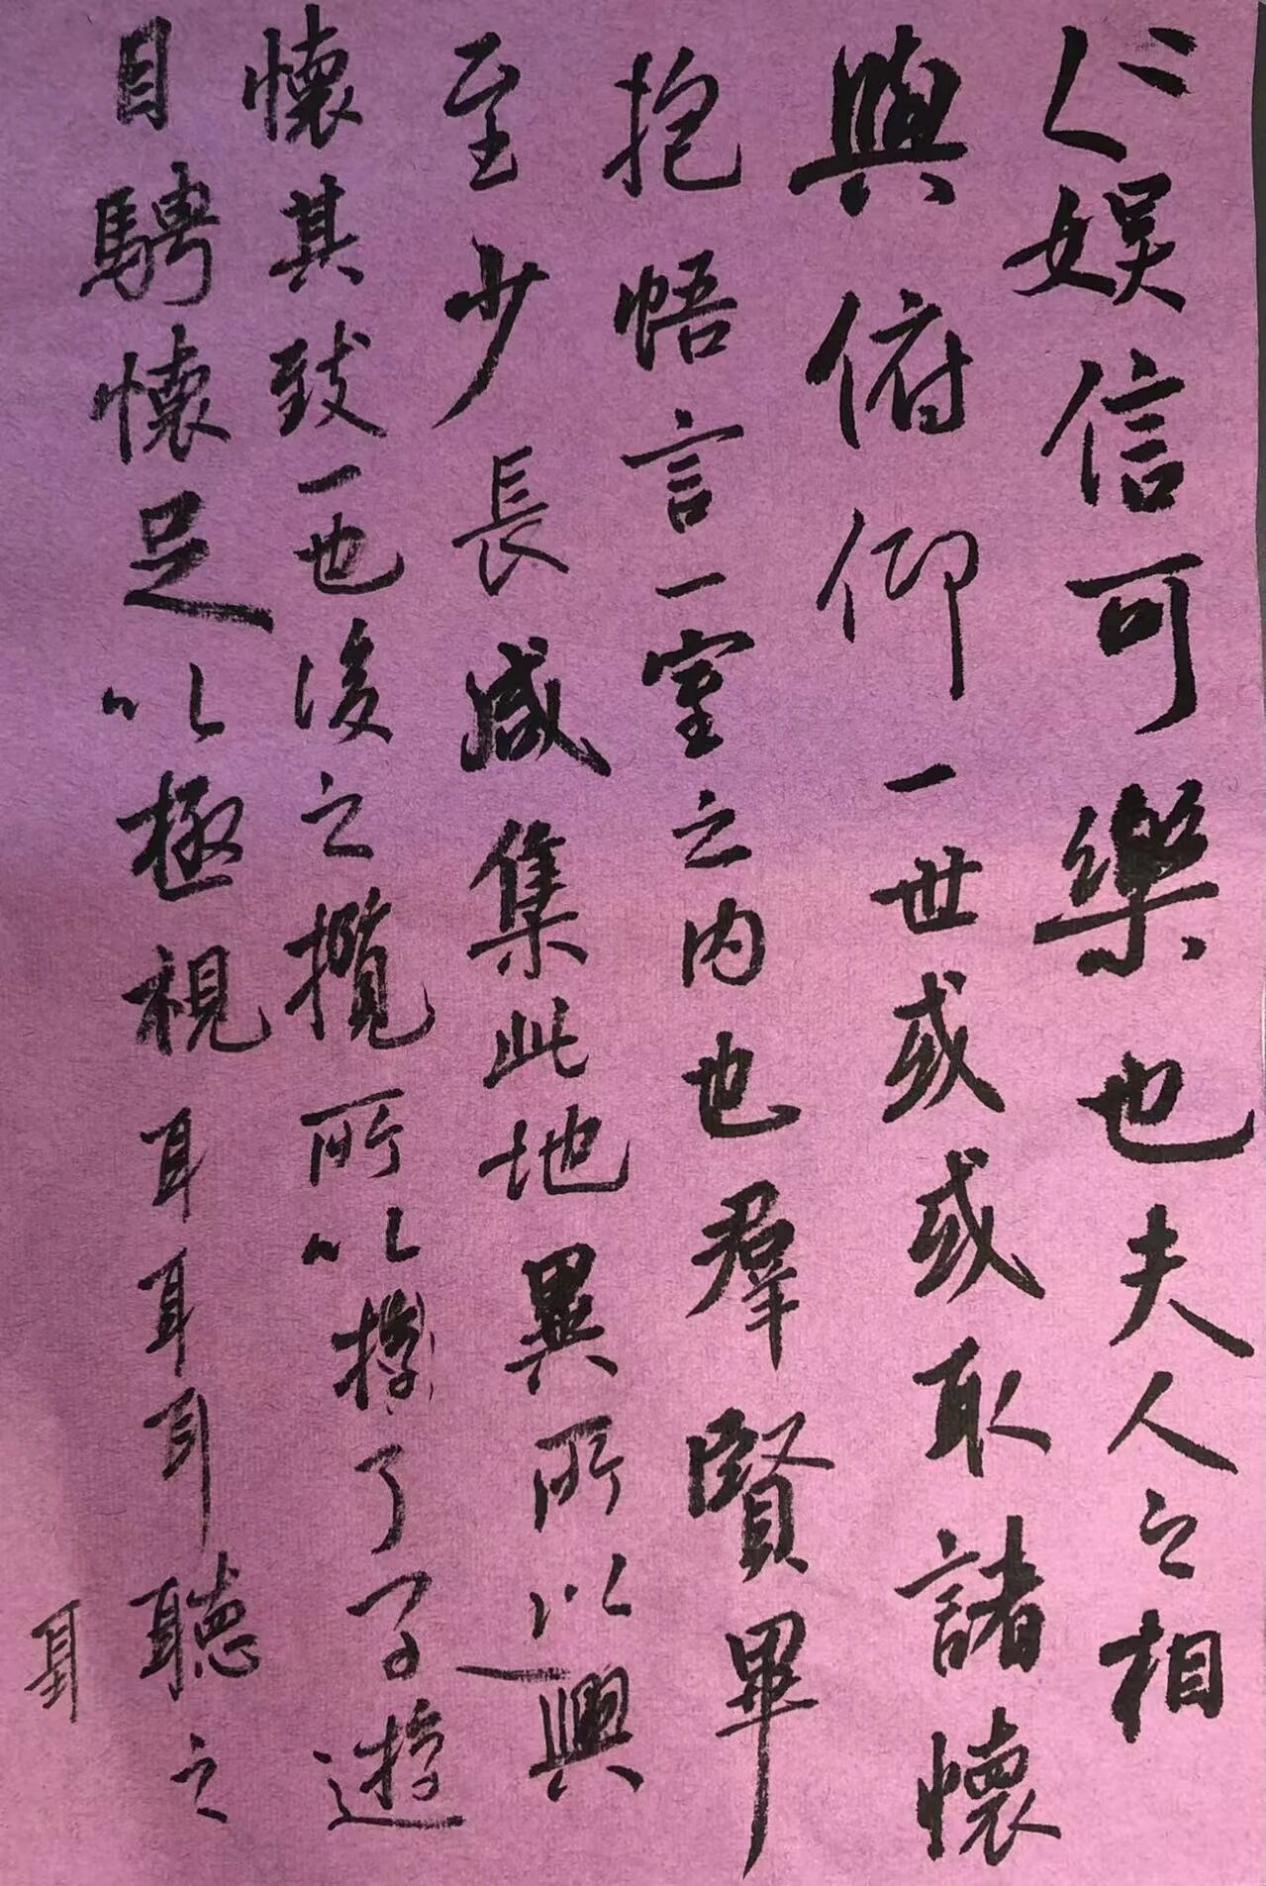 娱信可樂也夫人之相
與俯仰一世或或取諸懷
抱悟言一室之内也羣賢畢
至少長咸集此地異所以興
懷其致一也後之攬所以了遊
目騁懷足以極視耳耳耳聽之
耳